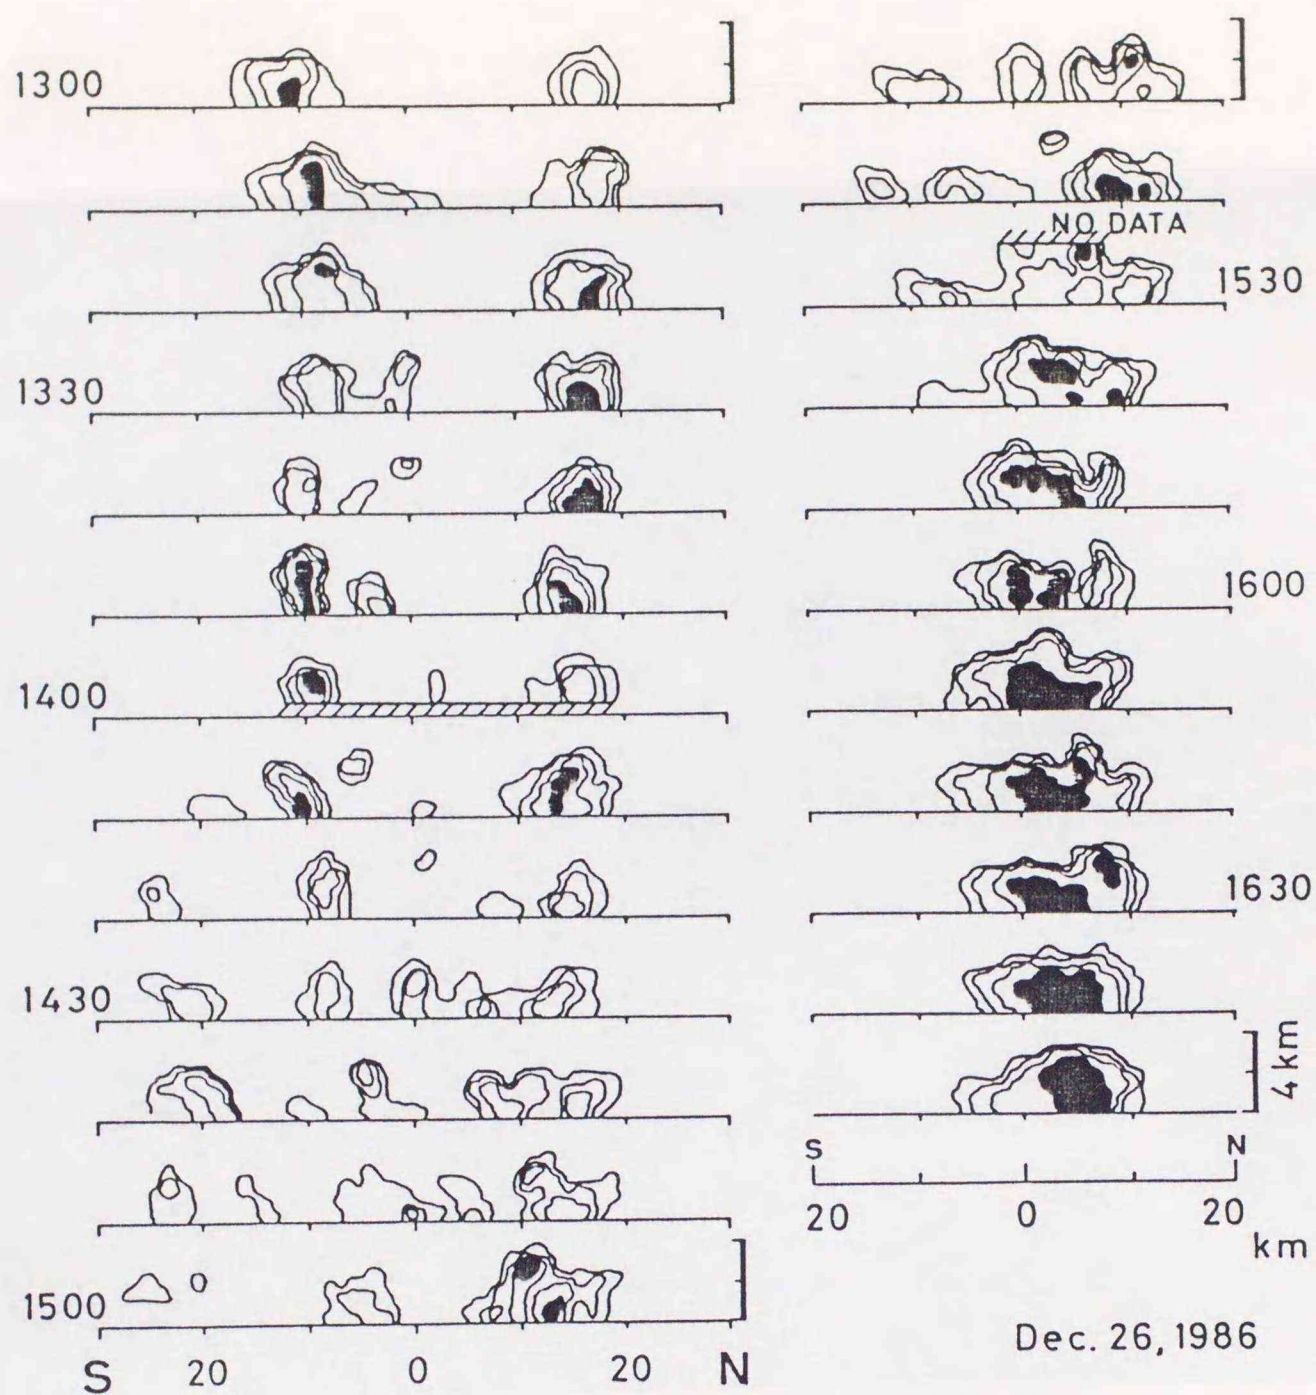 1300
1330
1400
1430
1500
S 20 0 20 N
NO DATA
1530
1600
1630
4 km
S N
20 0 20
km
Dec. 26, 1986